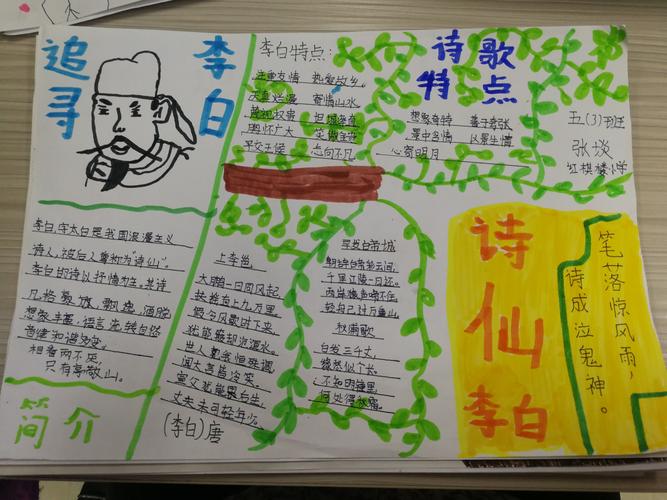 追寻
李白
李白特点:
注重友情 热爱故乡
天真烂漫 寄情山水
蔑视权贵
胸怀广大 笑傲
平交王侯 志向不凡
诗歌
特点
想象奇特 善于夸张
景中含情 以景生情
心寄明月
五(3)班
张埮
红棋楼小学
李白,字太白是我国浪漫主义
诗人,被后人尊称为“诗仙”。
李白的诗以抒情为主。其诗
风格豪放飘逸洒脱
想象丰富,语言流转自然
音律和谐多变。
相看两不厌
只有敬亭山。
简介
上李邕
大鹏一日同风起,
扶摇直上九万里。
假令风歇时下来
犹能簸却沧溟水。
世人见我恒殊调
闻大言皆冷笑。
宣父犹能畏后生
丈夫未可轻年少。
(李白)唐
早发白帝城
朝辞白帝彩云间,
千里江陵一日还。
两岸猿声啼不住
轻舟已过万重山
秋浦歌
白发三千丈,
缘愁似个长。
不知明镜里,
何处得秋霜。
诗仙
李白
笔落惊风雨,
诗成泣鬼神。